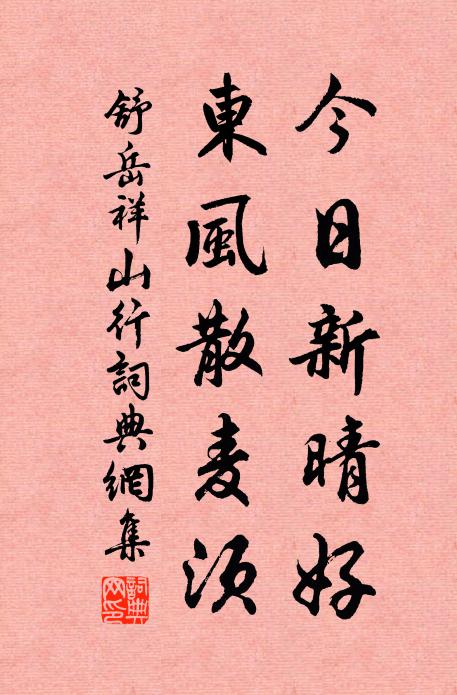 今日新晴好
東風散麦須
舒岳祥山行詞典網集
詞典